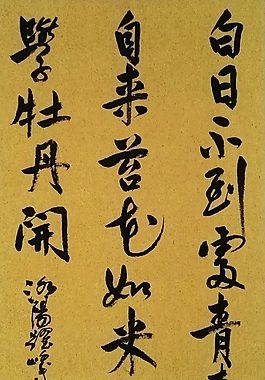 白日不到處青
自来苔花如米
學牡丹開
洛陽